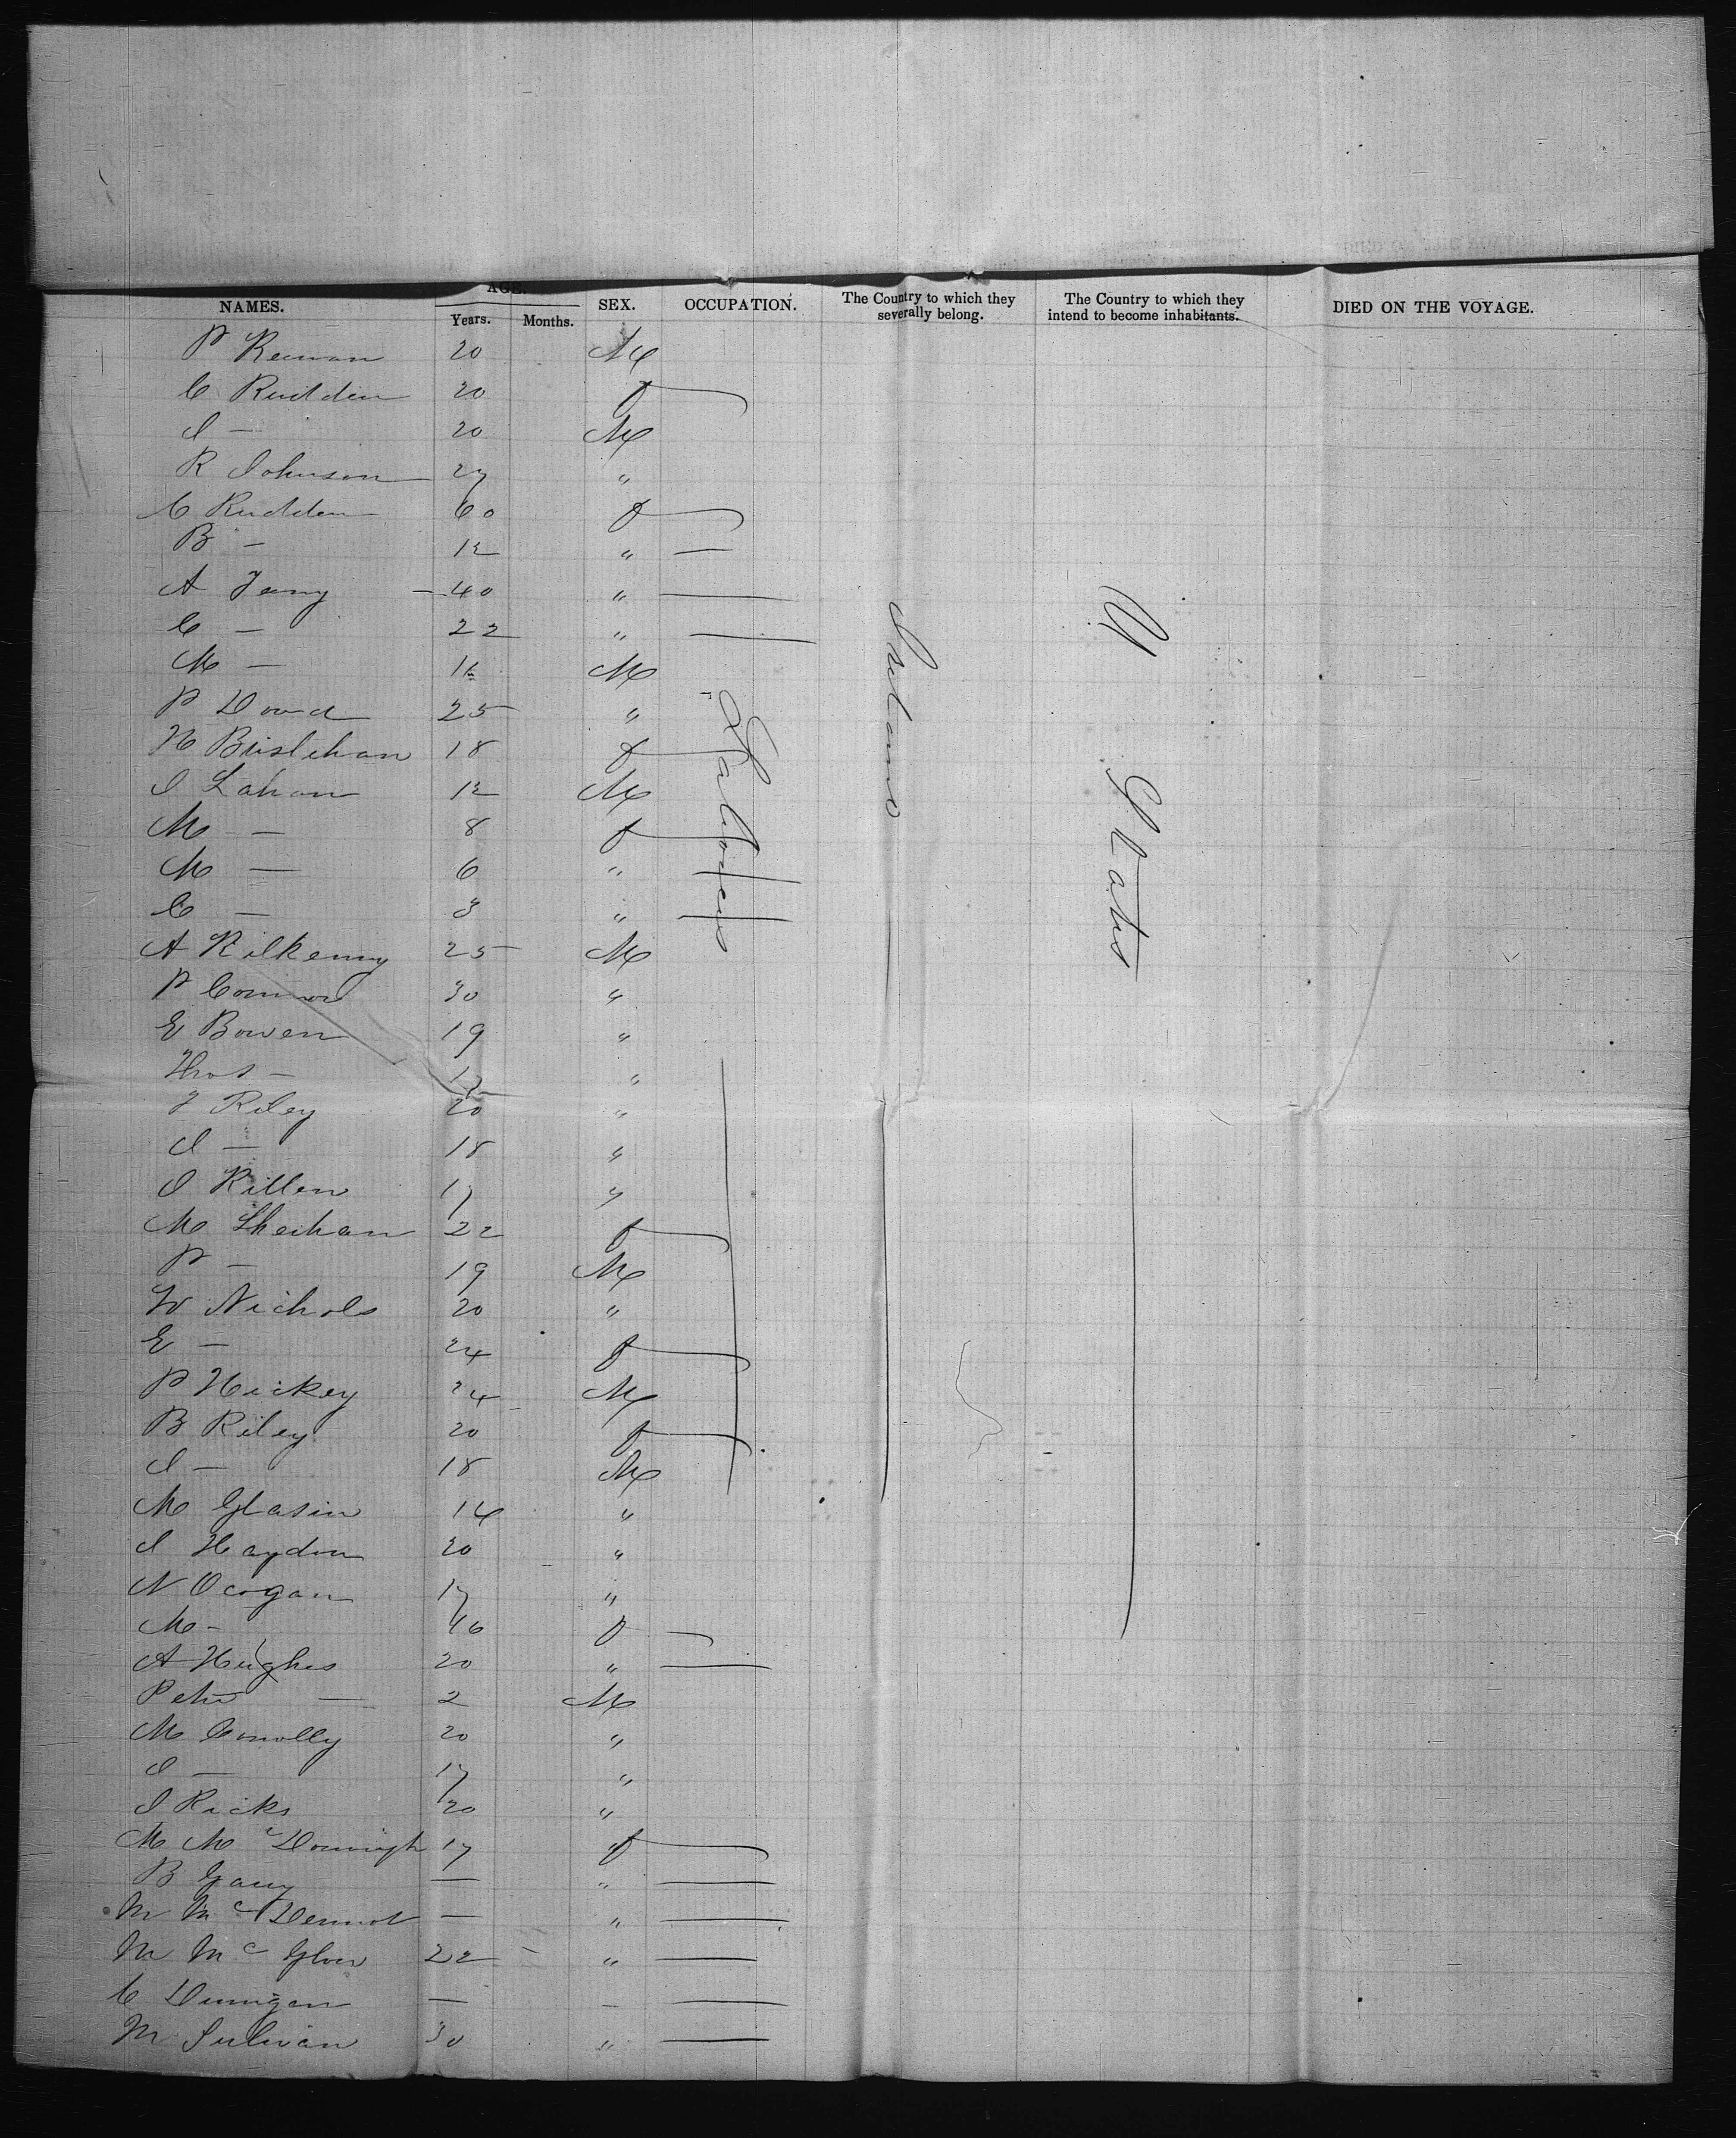 AGE.
NAMES. Years. Months. SEX. OCCUPATION. The Country to which they severally belong. The Country to which they intend to become inhabitants. DIED ON THE VOYAGE.
P Keenan 20 M
C Rudden 20 f
J — 20 M
R Johnson 27 "
C Rudden 60 f
B — 12 " —
A — 40 " —
C — 22 " —
M — M
P Dowd 25 "
H 18 f
J Lahan 12 M
M — 8 f
M — 6 " —
C — 3 " —
A Kilkenny 25 M
P Connor 30 "
E Bowen 19 "
Thos — "
Riley 20 "
J — 18 "
J Killen 17 "
M Sheehan 22 f
P — 19 M
W Nichols 20 "
E — 24 f
P Hickey 24 M
B Riley 20 f
J — 18 M
M Glasin 14 "
J Haydon 20 "
N Ocogan 17 "
M — f —
A Hughes 20 " —
Peter — 2 M
M Conolly 20 "
J — 17 "
J Ricks 20 "
M Mc 17 f
B — " —
M McDermot — " —
M McGlow 22 " —
C Dunigan — - —
M Sulivan 30 " —
Labourers
Ireland
U States